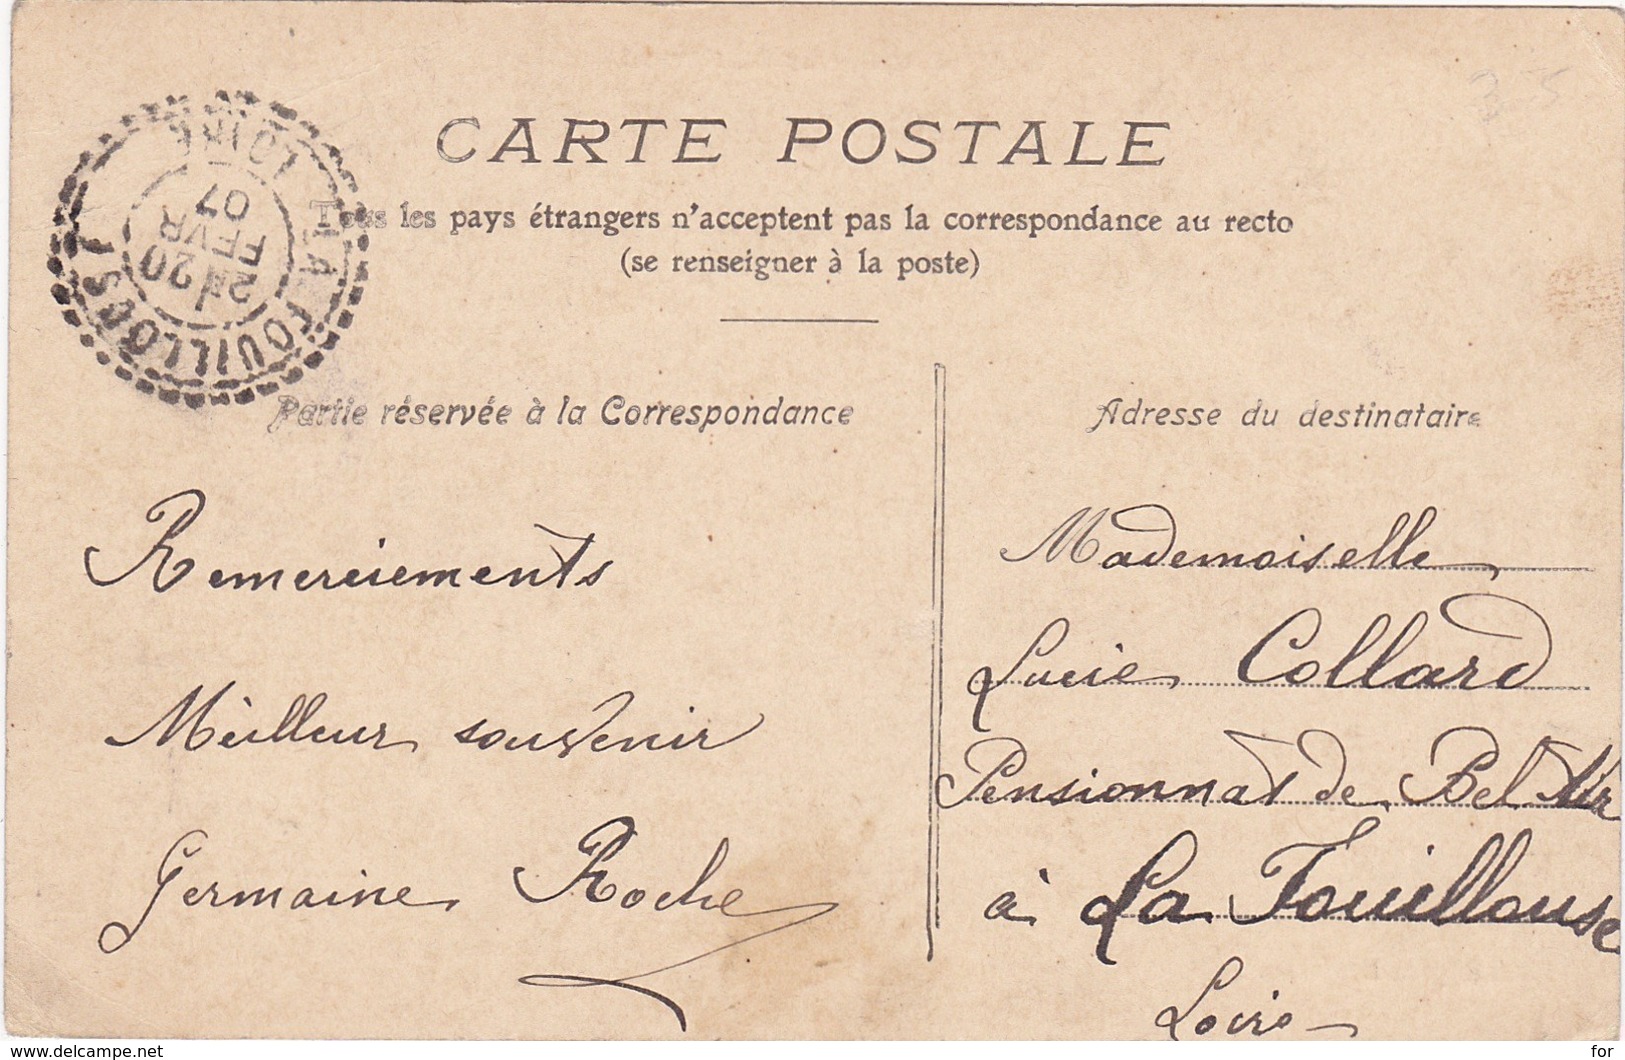 CARTE POSTALE
Tous les pays étrangers n'acceptent pas la correspondance au recto
(se renseigner à la poste)
LA FOUILLOUSE
LOIRE
20
FEVR
07
Partie réservée à la Correspondance
Remerciements
Meilleur souvenir
Germaine Roche
Adresse du destinataire
Mademoiselle
Lucie Collard
Pensionnat de Bel Air
à La Fouillouse
Loire
© www.delcampe.net
for